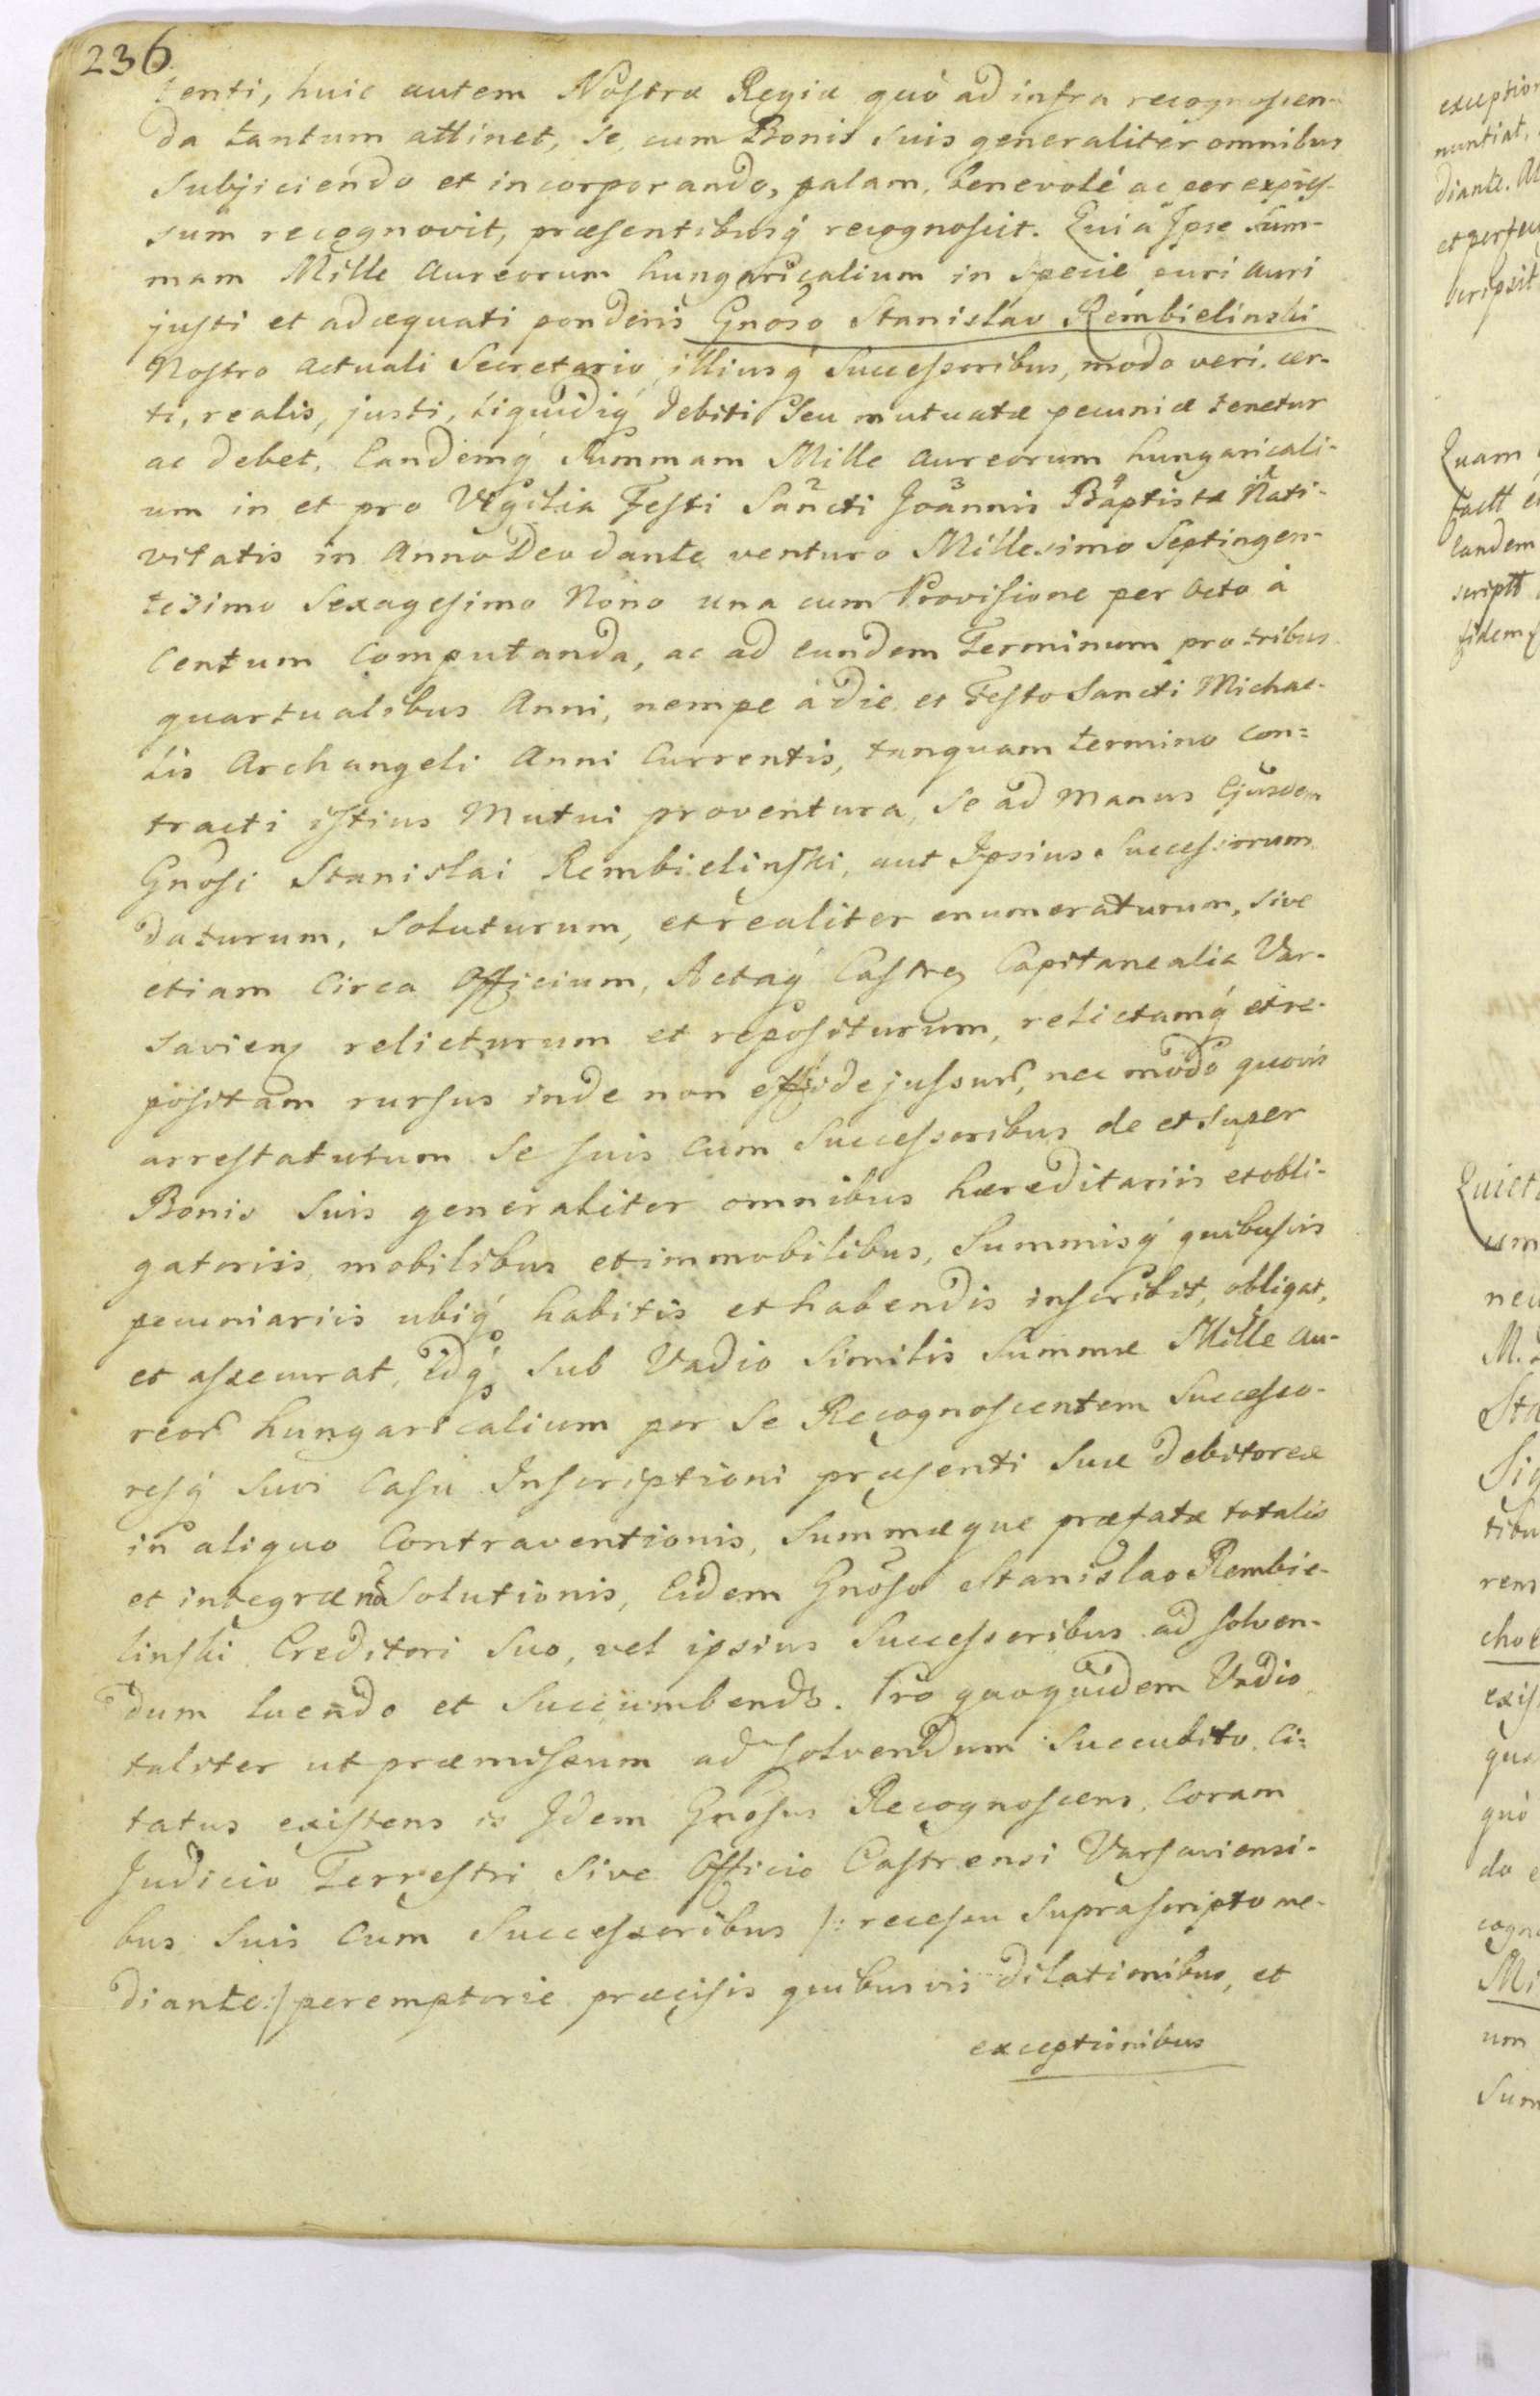 236
tenti, huic autem Nostræ Regiæ quò ad infra recognoscen-
da tantum attinet, se cum Bonis suis generaliter omnibus
Subjiciendo et incorporando, palam, benevolé ac per expres-
sum recognovit, præsentibusq́ recognoscit. Quia Ipse Sum-
mam Mille Aureorum hungaricalium in Specie puri Auri
justi et adæquati ponderis Gnoso Stanislao Rembielinski
Nostro Actuali Secretario, illiusq́ Successoribus, modo veri, cer-
ti, realis, justi, liquidiq́ debiti Seu mutuatæ pecuniæ tenetur
ac debet, Eandemq́ Summam Mille Aureorum hungaricali-
um in et pro Vigilia Festi Sancti Joannis Baptistæ Nati-
vitatis in Anno Deo dante venturo Millesimo Septingen-
tesimo Sexagesimo Nono una cum Provisione per Octo à
Centum Computanda, ac ad eundem Terminum pro tribus
quartualibus Anni, nempe à die et Festo Sancti Michae-
lis Archangeli Anni Currentis, tanquam termino con=
tracti istius Mutui proventura, Se ad Manus Ejusdem
Gnosi Stanislai Rembielinski, aut Ipsius Successorum
daturum, Soluturum, et realiter enumeraturum, sive
etiam Circa Officium, Actaq́ Castren Capitanealia Var-
savien relicturum et repositurum, relictamq́ et re-
positam rursus inde non effidejussur, nec modo quovis
arrestatutum Se suis Cum Successoribus de et super
Bonis Suis generaliter omnibus hæreditariis et obli-
gatoriis, mobilibus et immobilibus, Summisq́ quibusvis
pecuniariis ubiq́ habitis et habendis inscribit, obligat,
et assecurat, idq́ Sub Vadio Similis Summæ Mille Au-
reor hungaricalium per Se Recognoscentem Successo-
resq́ Suos Casu Inscriptioni præsenti Suæ debitoreæ
in aliquo Contraventionis, Summæque præfatæ totalis
et integræ no Solutionis, Eidem Gnoso Stanislao Rembie-
linski Creditori Suo, vel ipsius Successoribus ad solven-
dum luendo et Succumbendo. Pro quoquidem Vadio
taliter ut præmissum ad solvendum Succubito, Ci=
tatus existens is Idem Gnosus Recognoscens, Coram
Judicio Terrestri Sive Officio Castrensi Varsaviensi-
bus Suis Cum Successoribus /: recessu Suprascripto me-
diante :/ peremptorie præcisis quibusvis dilationibus, et
exceptionibus
nuntiat,
Quam
eandem
rem
cho
quò
Mi
um
Sum